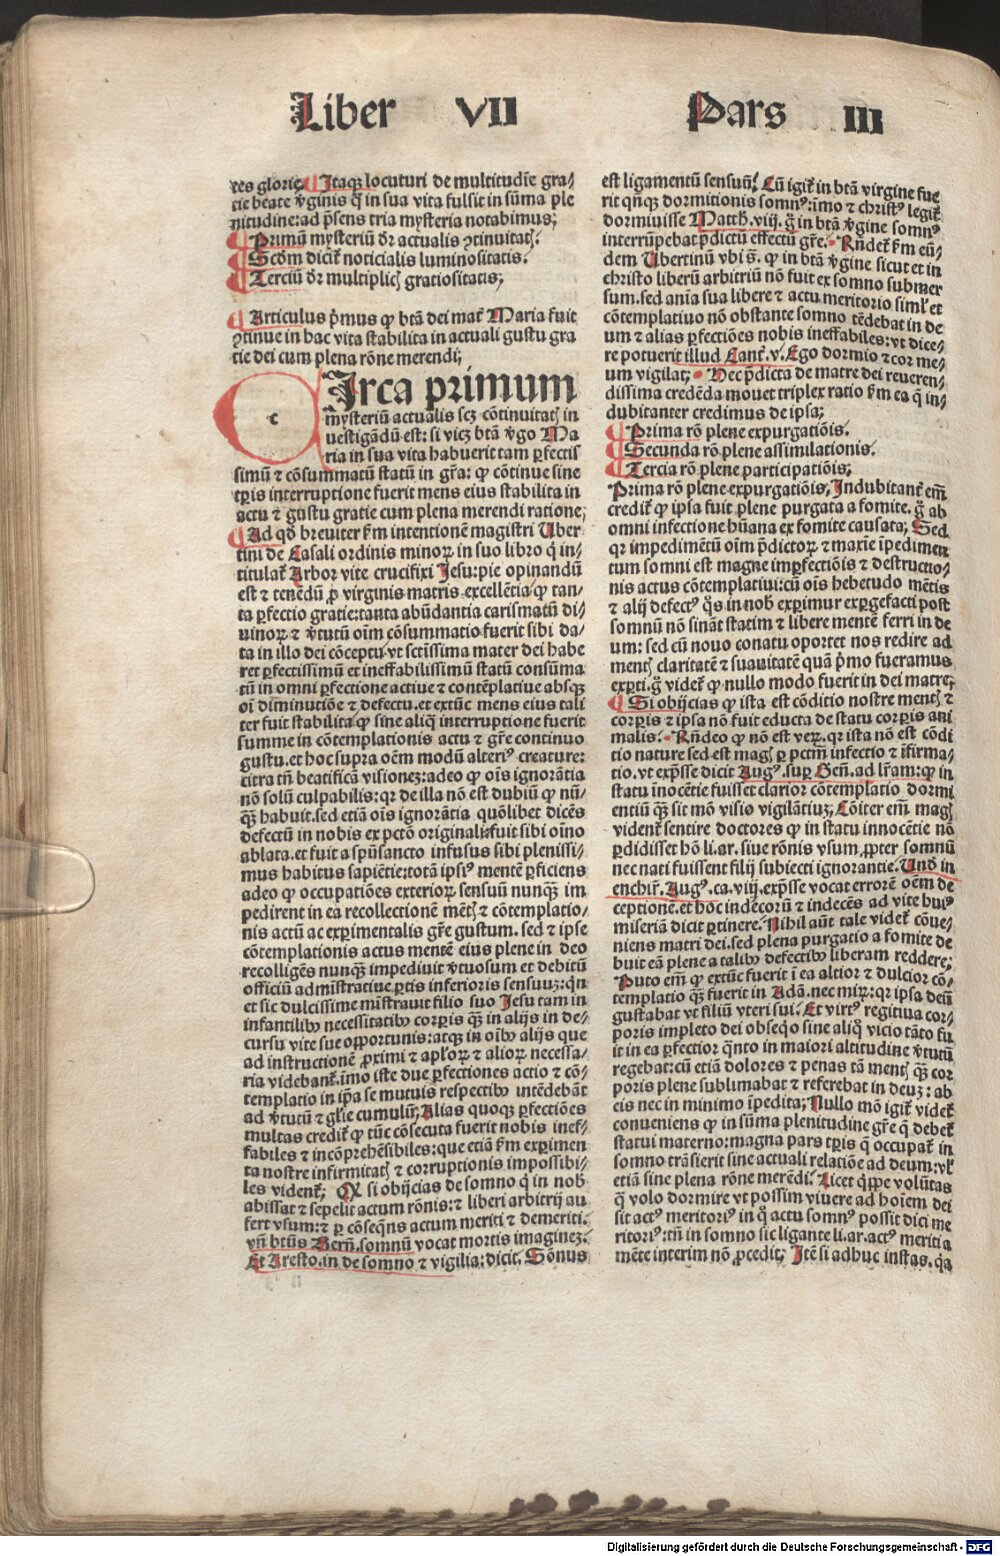 Liber VII Pars III
tes glorie. Itaqꝫ locuturi de multitudīe gra/
tie beate v̾ginis q̄ in sua vita fulsit in sūma ple
nitudine: ad p̄sens tria mysteria notabimus;
Primū mysteriū dr̄ actualis ꝯtinuitatꝭ.
Scd̄m dicit᷑ noticialis luminositatis.
Terciū dr̄ multiplicꝭ gratiositatis;
Articulus p̄mus ꝙ btā dei mat᷑ Maria fuit
ꝯtinue in hac vita stabilita in actuali gustu gra
tie dei cum plena rōne merendi;
c Irca primum
mysteriū actualis scꝫ cōtinuitatꝭ in
uestigādū est: si vicꝫ btā v̾go Ma
ria in sua vita habuerit tam ꝑfectis
simū ⁊ cōsummatū statū in gr̄a: ꝙ cōtinue sine
tꝑis interruptione fuerit mens eius stabilita in
actu ⁊ gustu gratie cum plena merendi ratione;
Ad qd̄ breuiter ẜm intentionē magistri Vber
tini de Casali ordinis minoꝝ in suo libro q̄ in/
titulat᷑ Arbor vite crucifixi Jesu: pie opinandū
est ⁊ tenēdū ꝓ virginis matris excellētia ꝙ tan/
ta ꝑfectio gratie: tanta abūdantia carismatū di/
uinoꝝ ⁊ v̾tutū oīm cōsummatio fuerit sibi da/
ta in illo dei cōceptu vt sctīssima mater dei habe
ret ꝑfectissimū et ineffabilissimū statū consūma
tū in omni ꝑfectione actiue ⁊ contēplatiue absqꝫ
oī dīminutiōe ⁊ defectu. et extūc mens eius tali
ter fuit stabilita ꝙ sine aliq̄ interruptione fuerit
summe in cōtemplationis actu ⁊ gr̄e continuo
gustu. et hoc supra oēm modū alteriꝰ creature:
citra tn̄ beatificā visionez: adeo ꝙ oīs ignorātia
nō solū culpabilis: qr de illa nō est dubiū ꝙ nū/
q̄ habuit. sed etiā oīs ignorātia quōlibet dicēs
defectū in nobis ex pctō originali fuit sibi oīno
ablata. et fuit a spūsancto infusus sibi plenissi/
mus habitus sapiētie: totā ipsiꝰ mentē ꝑficiens
adeo ꝙ occupatiōes exterioꝝ sensuū nunqꝫ im
pedirent in ea recollectionē mētꝭ ⁊ cōtemplatio/
nis actū ac exꝑimentalis gr̄e gustum. sed ⁊ ipse
cōtemplationis actus mentē eius plene in deo
recolligēs nunqꝫ impediuit v̾tuosum et debitū
officiū admīstratiue ꝑtis inferioris sensuuꝫ: qn̄
et sic dulcissime mīstrauit filio suo Jesu tam in
infantilibꝰ necessitatibꝰ corꝑis qꝫ in alijs in de/
cursu vite sue opportunis: atqꝫ in oībꝰ alijs que
ad instructionē ꝓximi ⁊ apl̄oꝝ ⁊ alioꝝ necessa/
ria videbant᷑. īmo iste due ꝑfectiones actio ⁊ cō/
templatio in ip̄a se mutuis respectibꝰ intēdebāt
ad v̾tutū ⁊ gl̄ie cumulū; Alias quoqꝫ ꝑfectiōes
multas credit᷑ ꝙ tūc cōsecuta fuerit nobis inef/
fabiles ⁊ incōprehēsibiles: que etiā ẜm exꝑimen
ta nostre infirmitatꝭ ⁊ corruptionis impossibi/
les vident᷑; Qꝫ si obijcias de somno q̄ in nob̄
abissat ⁊ sepelit actum rōnis: ⁊ liberi arbitrij au
fert vsum: ⁊ ꝑ cōseqn̄s actum meriti ⁊ demeriti.
vn̄ btūs Bern̄. somnū vocat mortis imaginez.
Et Aresto. in de somno ⁊ vigilia: dicit. Sōnus
est ligamentū sensuū. Cū igit᷑ in btā virgine fue
rit qn̄qꝫ dormitionis somnꝰ: īmo ⁊ christꝰ legit᷑
dormiuisse Matth. viij. g̊ in btā v̾gine somnꝰ
interrūpebat p̄dictū effectū gr̄e. Rn̄det᷑ ẜm eū/
dem Vbertinū vbi s̄. ꝙ in btā v̾gine sicut et in
christo liberū arbitriū nō fuit ex somno submer
sum. sed anīa sua libere ⁊ actu meritorio siml̄ et
cōtemplatiuo nō obstante somno tēdebat in de
um ⁊ alias ꝑfectiōes nobis ineffabiles: vt dice/
re potuerit illud Cant᷑. v. Ego dormio ⁊ cor me/
um vigilat; Hec p̄dicta de matre dei reueren/
dissima credēda mouet triplex ratio ẜm ea q̄ in/
dubitanter credimus de ipsa;
Prima rō plene expurgatiōis.
Secunda rō plene assimilationis.
Tercia rō plene participatiōis;
Prima rō plene expurgatiōis, Indubitant᷑ em̄
credit᷑ ꝙ ipsa fuit plene purgata a fomite. g̊ ab
omni infectione hūana ex fomite causata; Sed
qr impedimētū oīm p̄dictoꝝ ⁊ maxīe īpedimen
tum somni est magne imꝑfectiōis ⁊ destructio/
nis actus cōtemplatiui: cū oīs hebetudo mētis
⁊ alij defectꝰ q̊s in nob̄ exꝑimur exꝑgefacti post
somnū nō sināt statim ⁊ libere mentē ferri in de
um: sed cū nouo conatu oportet nos redire ad
mentꝭ claritatē ⁊ suauitatē quā p̄mo fueramus
exꝑti. g̊ videt᷑ ꝙ nullo modo fuerit in dei matre;
Si obijcias ꝙ ista est cōditio nostre mentꝭ ⁊
corꝑis ⁊ ipsa nō fuit educta de statu corꝑis ani
malis. Rn̄deo ꝙ nō est veꝝ. qr ista nō est cōdi
tio nature sed est magꝭ ꝑ pctm̄ infectio ⁊ īfirma/
tio. vt exp̄sse dicit Augꝰ. suꝑ Gen̄. ad lr̄am: ꝙ in
statu īnocētie fuisset clarior cōtemplatio dormi
entiū qꝫ sit mō visio vigilātiuꝫ; Cōiter em̄ magꝭ
vident᷑ sentire doctores ꝙ in statu innocētie nō
ꝑdidisset hō li. ar. siue rōnis vsum. ꝓpter somnū
nec nati fuissent filij subiecti ignorantie. Vnd̄ in
enchir̄. Augꝰ. ca. viij. exp̄sse vocat errorē oēm de
ceptionē. et hoc indecorū ⁊ indecēs ad vite huiꝰ
miseriā dicit ꝑtinere. Nihil aūt tale videt᷑ cōue/
niens matri dei. sed plena purgatio a fomite de
buit eā plene a talibꝰ defectibꝰ liberam reddere;
Puto em̄ ꝙ extūc fuerit ī ea altior ⁊ dulcior cō/
templatio qꝫ fuerit in Adā. nec miꝝ: qr ipsa deū
gustabat vt filiū vteri sui. Et virtꝰ regitiua cor/
poris impleto dei obseq̊o sine aliq̊ vicio tāto fu
it in ea ꝑfectior q̊nto in maiori altitudine v̾tutū
regebat: cū etiā dolores ⁊ penas tā mentꝭ qꝫ cor
poris plene sublimabat ⁊ referebat in deuꝫ: ab
eis nec in minimo īpedita; Nullo mō igit᷑ videt᷑
conueniens ꝙ in sūma plenitudine gr̄e q̄ debet᷑
statui materno: magna pars tꝑis q̄ occupat᷑ in
somno trāsierit sine actuali relatiōe ad deum: vl̄
etiā sine plena rōne merēdi. Licet q̄ppe volūtas
q̄ volo dormire vt possim viuere ad hoīem dei
sit actꝰ meritoriꝰ in q̊ actu somnꝰ possit dici me
ritoriꝰ: tn̄ in somno sic ligante li. ar. actꝰ meriti a
mēte interim nō ꝓcedit; Itē si adhuc instas. q̄a
Digitalisierung gefördert durch die Deutsche Forschungsgemeinschaft - DFG